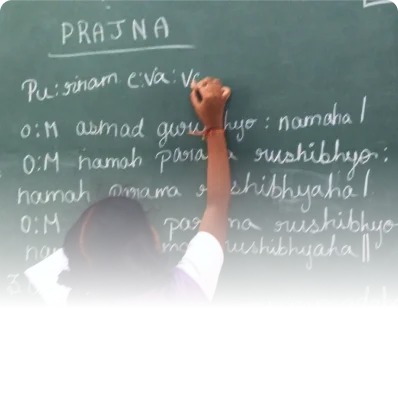 PRAJNA
Pu:rinam e:va:
O:M asmad hyo: namaha /
O:M namah para a rushibhyo:
namah parama shibhyaha /.
O:M na rushibhyo
ushibhyaha ||